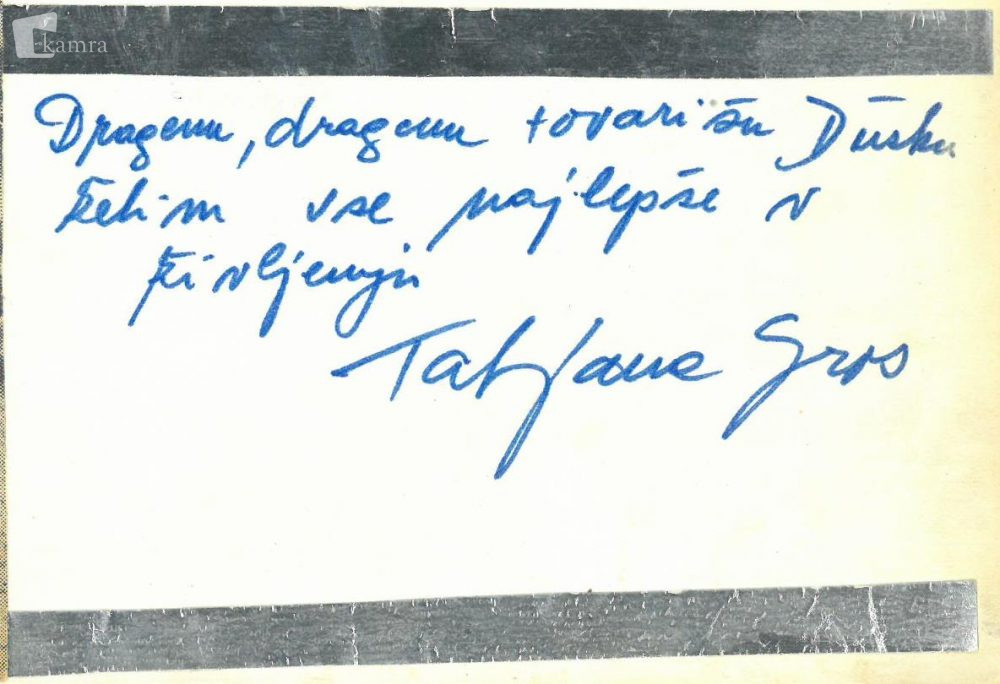 kamra
Dragemu, dragemu tovarišu Dušku
želim vse najlepše v
življenju
Tatjana Gros